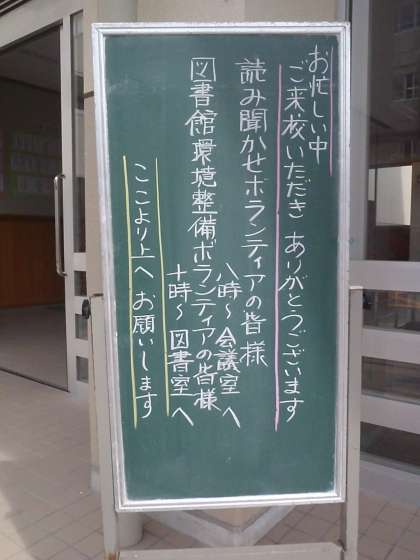 お忙しい中
ご来校いただき ありがとうございます
読み聞かせボランティアの皆様
八時〜 会議室へ
図書館環境整備ボランティアの皆様
十時〜 図書室へ
ここより上へ お願いします